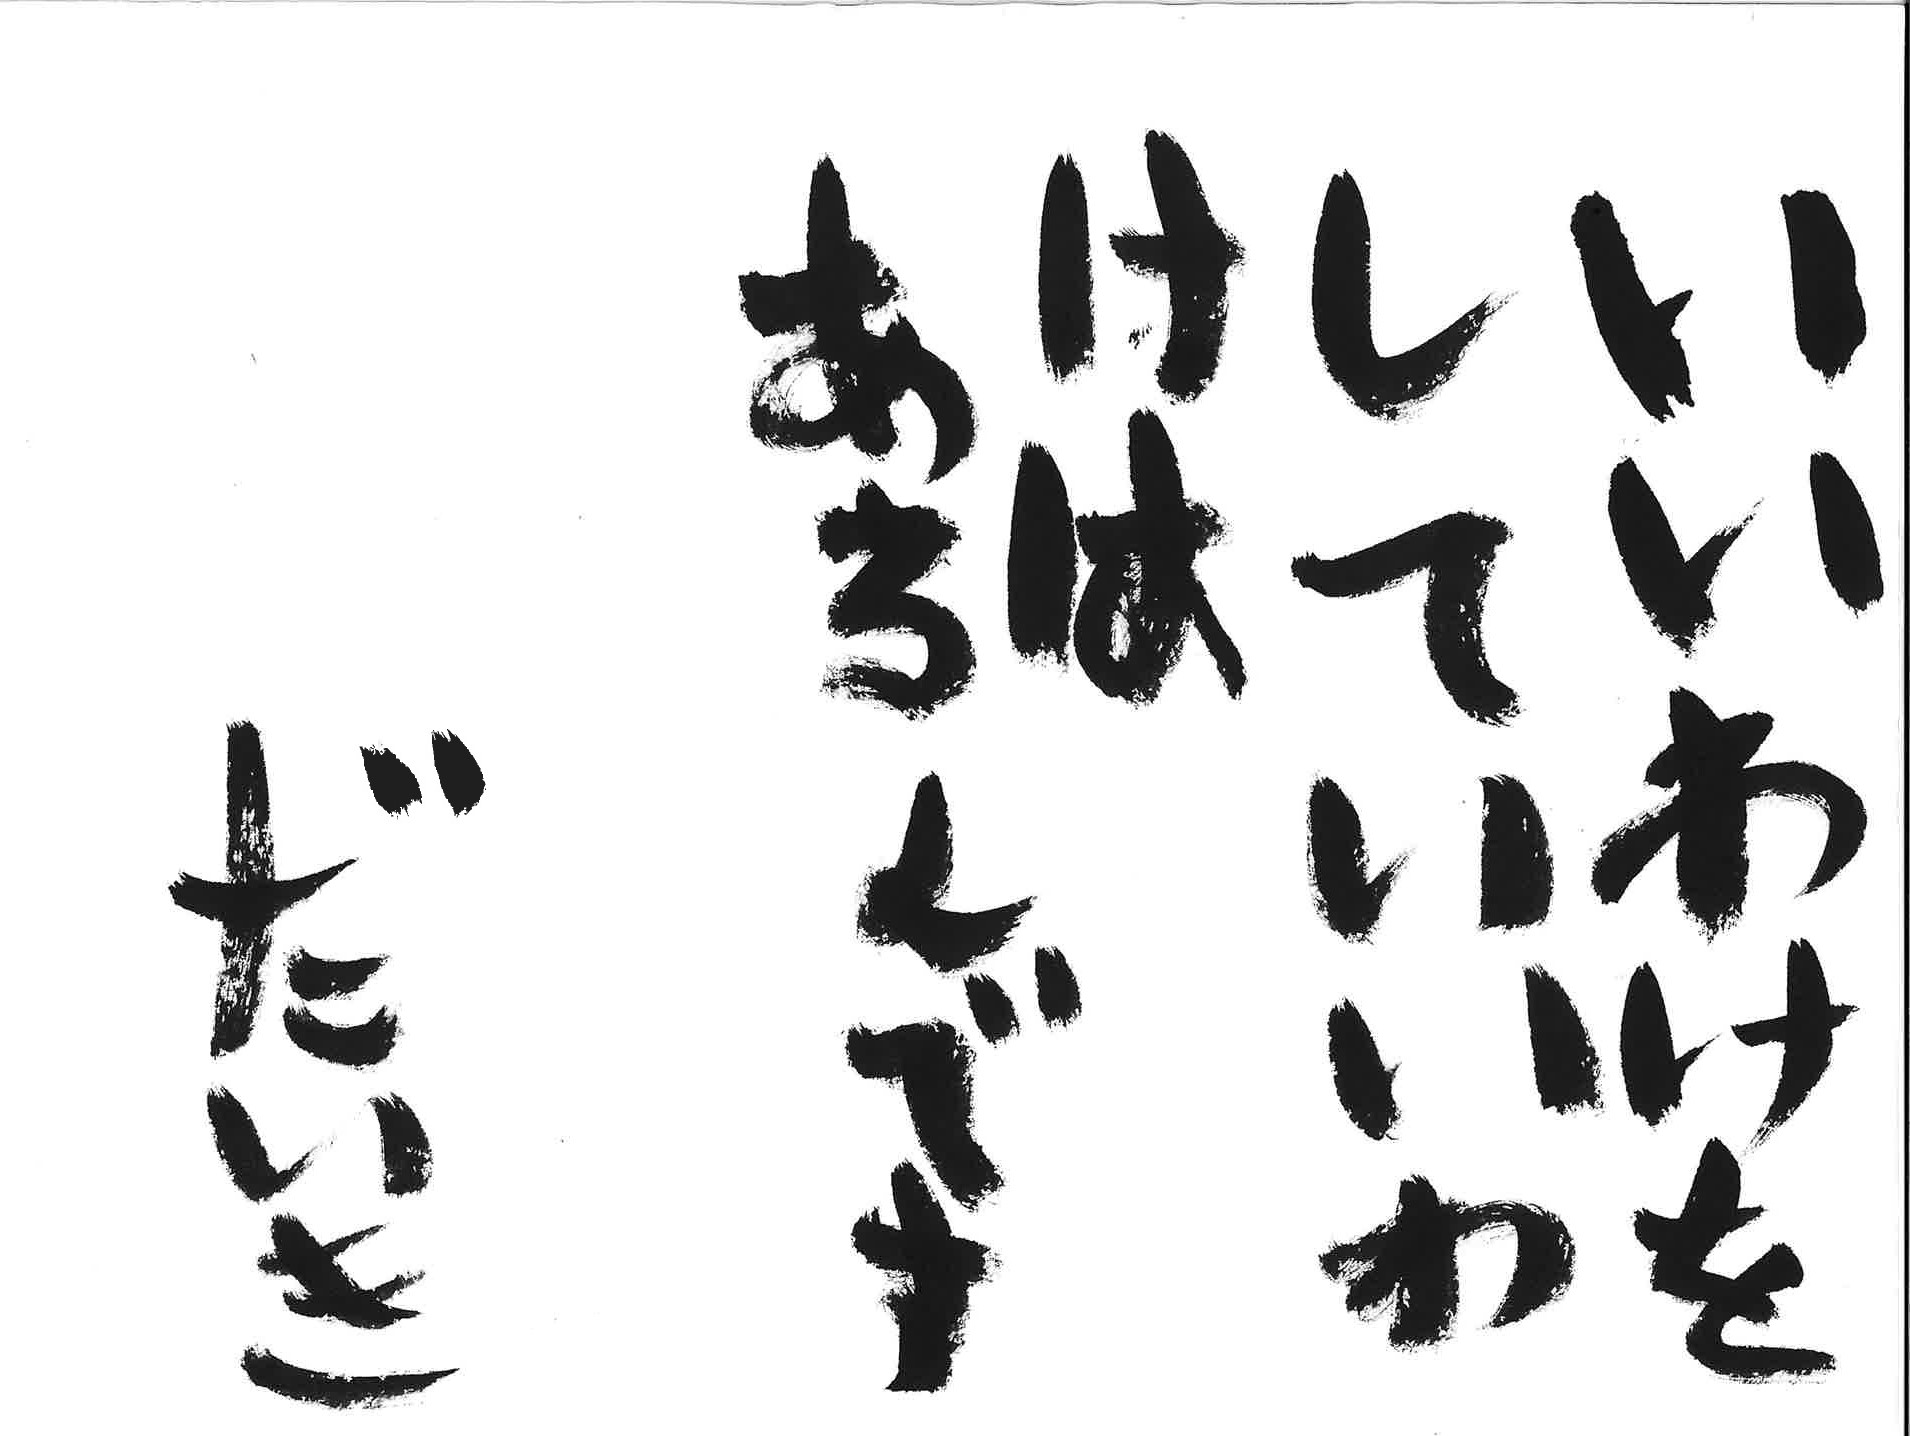 いいわけを
していいわ
けは
あるんです
だいき